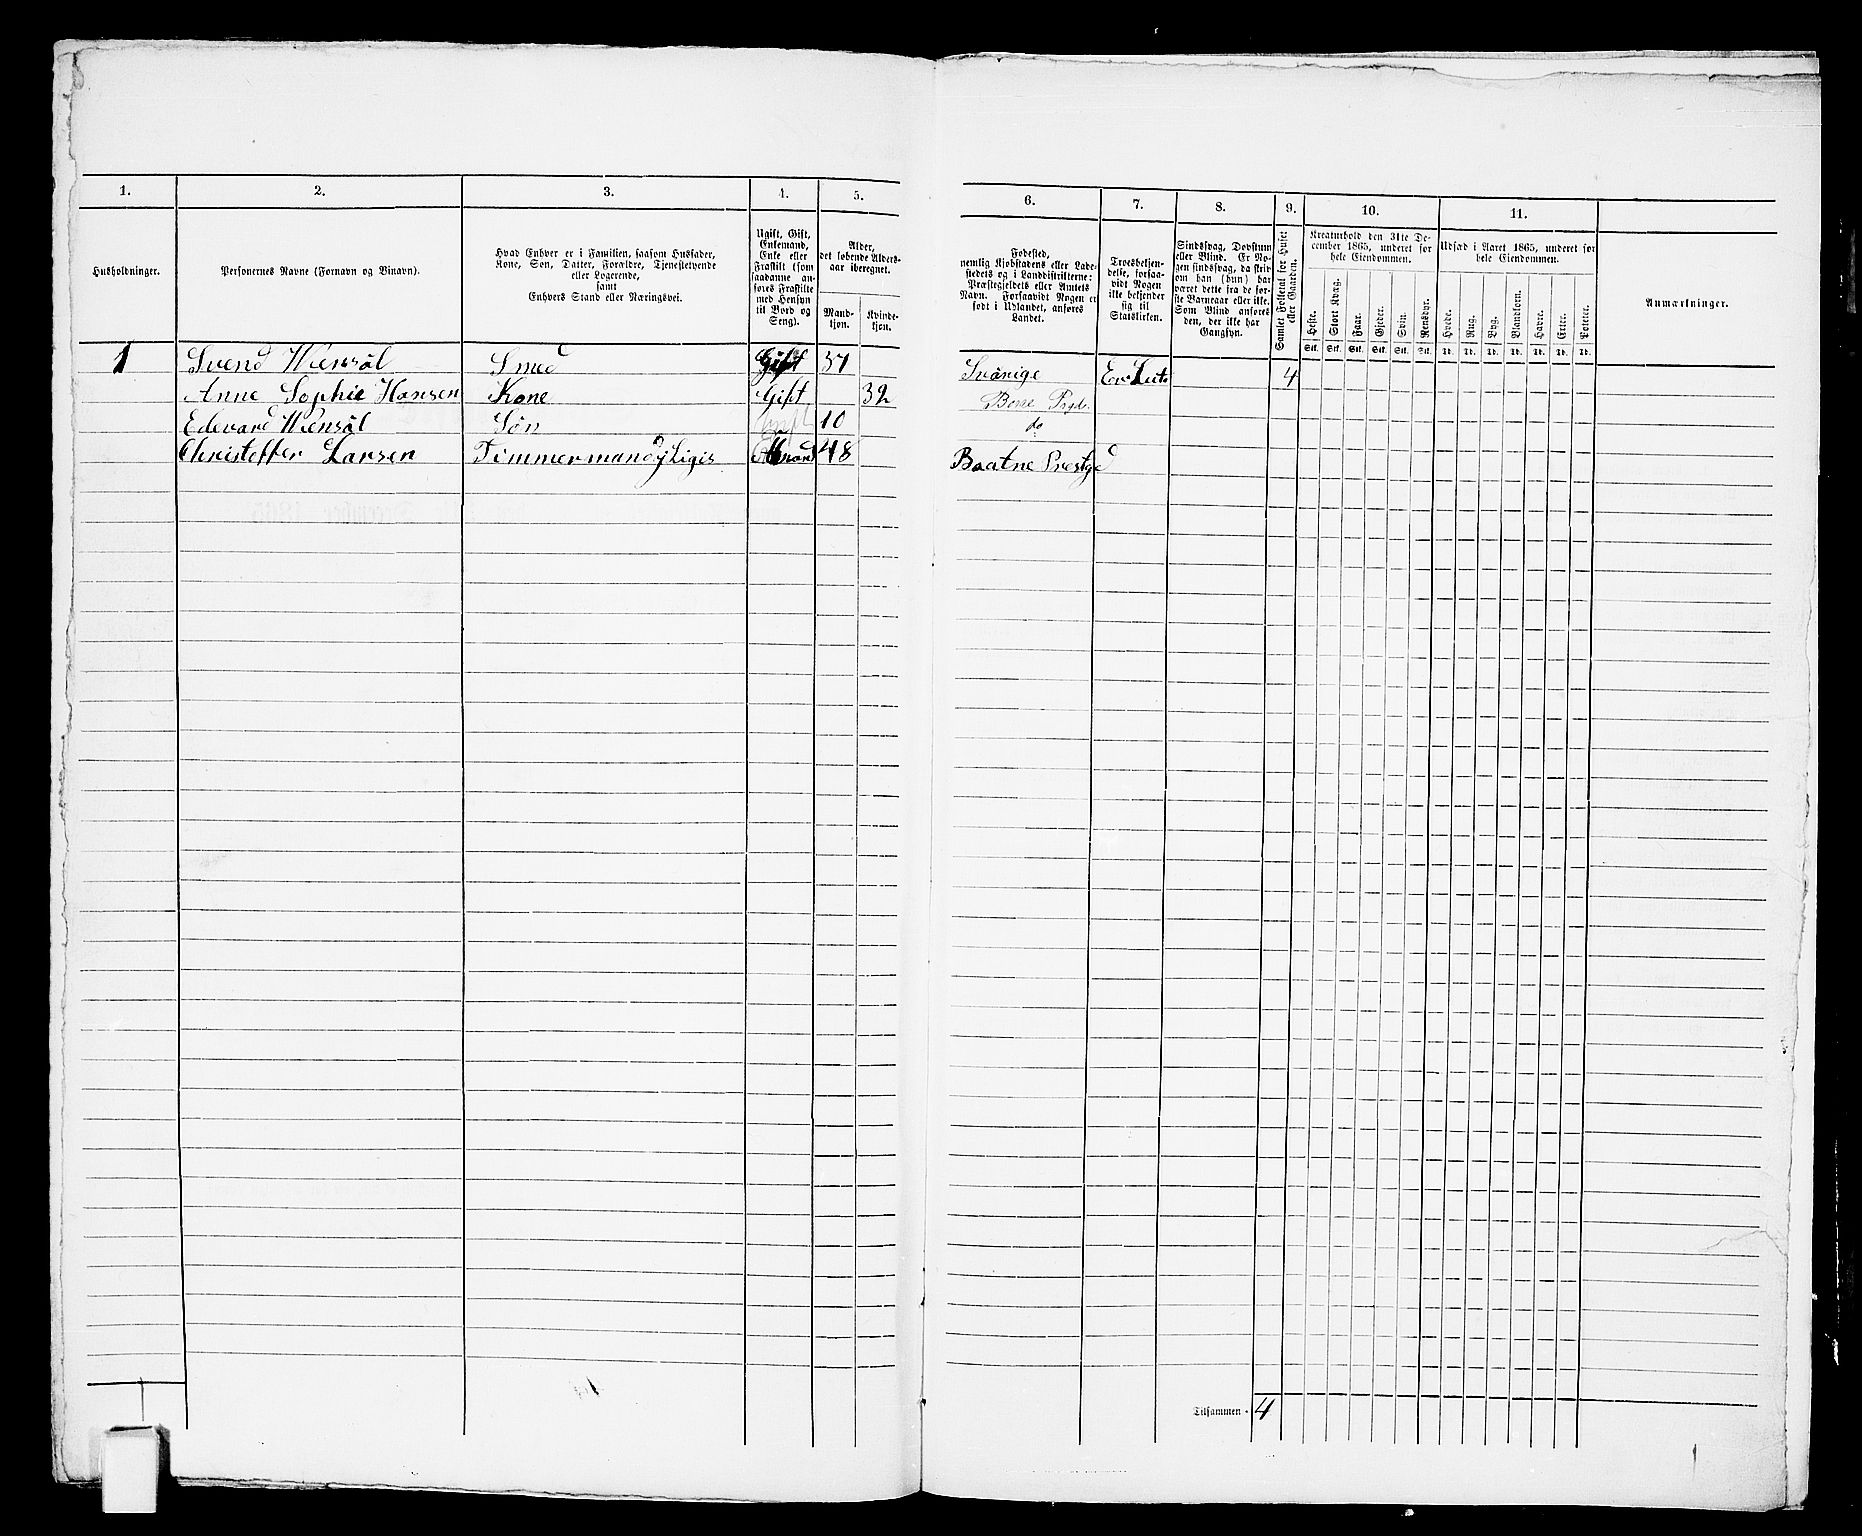 1. 2. 3. 4. 5. 6. 7. 8. 9. 10. 11.
Husholdninger.
Personernes Navne (Fornavn og Binavn).
Hvad Enhver er i Familien, saasom Husfader,
Kone, Søn, Datter, Forældre, Tjenestetyende
eller Logerende,
samt
Enhvers Stand eller Næringsvei.
Ugift, Gift,
Enkemand,
Enke eller
Fraskilt (som
saadanne an-
føres Fraskilte
med Hensyn
til Bord og
Seng).
Alder,
det løbende Alders-
aar iberegnet.
Mand-
kjøn.
Kvinde-
kjøn.
Fødested,
nemlig Kjøbstadens eller Lade-
stedets og i Landdistrikterne:
Præstegjeldets eller Amtets
Navn. Forsaavidt Nogen er
født i Udlandet, anføres
Landet.
Troesbekjen-
delse, forsaa-
vidt Nogen
ikke bekjender
sig til
Statskirken.
Sindssvag, Døvstum
eller Blind. Er No-
gen sindssvag, da skriv
om han (hun) har
været dette fra de før-
ste Barneaar eller ikke.
Som Blind anføres
den, der ikke har
Gangsyn.
Samlet Folketal for Huset
eller Gaarden.
Kreaturhold den 31te De-
cember 1865, underet for
hele Eiendommen.
Heste. Stort Kvæg. Faar. Gjeder. Svin. Rensdyr.
Stk. Stk. Stk. Stk. Stk. Stk.
Udsæd i Aaret 1865, underet for
hele Eiendommen.
Hvede. Rug. Byg. Blandkorn. Havre. Erter. Poteter.
Td. Td. Td. Td. Td. Td. Td.
Anmærkninger.
1 Svend Wensøl Smed Gift 37 Svørige Ev. Lut. 4
Anne Sophie Hansen Kone Gift 32
Edevard Wensøl Søn 10 do
Christoffer Larsen Timmermand 48
Tilsammen 4